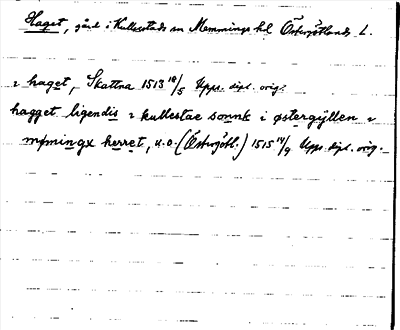 Haget, gård i Kullerstads sn Memmings hd Östergötlands L.
i haget, Skattna 1513 18/5 Upps. dipl. orig.
hagget ligendis i kullestae sonnk i østergyllen i
mømingx herret, u.o. (Östergötl.) 1515 14/9 Upps. dipl. orig.